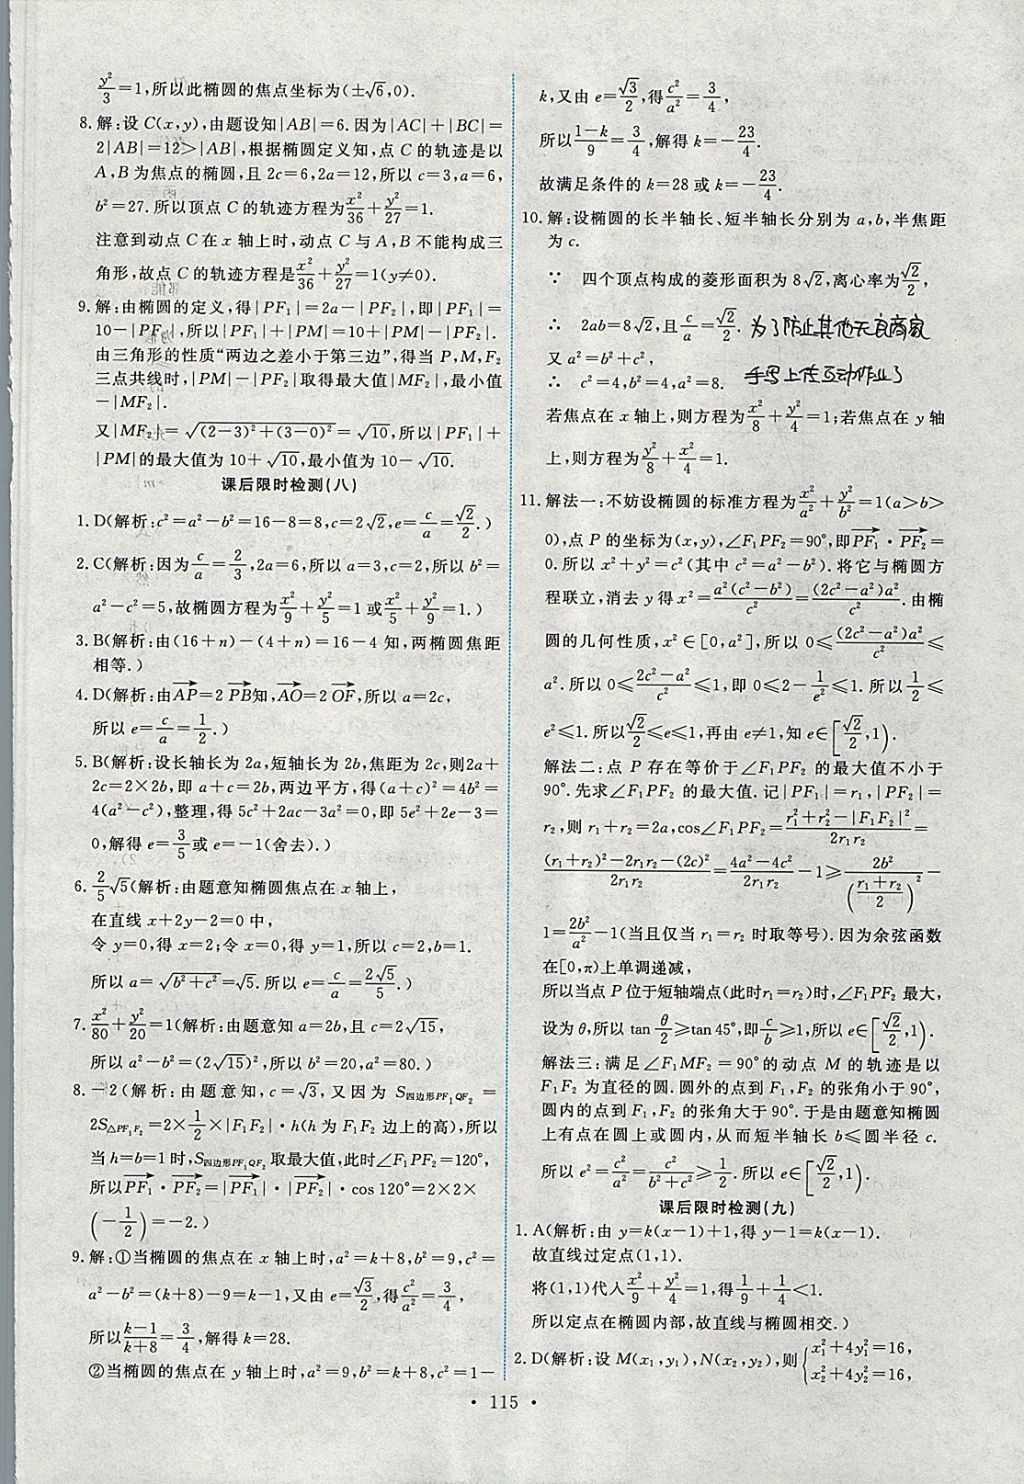 y²/3=1,所以此椭圆的焦点坐标为(±√6,0).
8.解:设C(x,y),由题设知|AB|=6.因为|AC|+|BC|=
2|AB|=12>|AB|,根据椭圆定义知,点C的轨迹是以
A,B为焦点的椭圆,且2c=6,2a=12,所以c=3,a=6,
b²=27.所以顶点C的轨迹方程为x²/36+y²/27=1.
注意到动点C在x轴上时,动点C与A,B不能构成三
角形,故点C的轨迹方程是x²/36+y²/27=1(y≠0).
9.解:由椭圆的定义,得|PF₁|=2a-|PF₂|,即|PF₁|=
10-|PF₂|,所以|PF₁|+|PM|=10+|PM|-|PF₂|.
由三角形的性质“两边之差小于第三边”,得当P,M,F₂
三点共线时,|PM|-|PF₂|取得最大值|MF₂|,最小值
-|MF₂|.
又|MF₂|=√((2-3)²+(3-0)²)=√10,所以|PF₁|+
|PM|的最大值为10+√10,最小值为10-√10.
课后限时检测(八)
1.D(解析:c²=a²-b²=16-8=8,c=2√2,e=c/a=√2/2.)
2.C(解析:因为c/a=2/3,2a=6,所以a=3,c=2,所以b²=
a²-c²=5,故椭圆方程为x²/9+y²/5=1或x²/5+y²/9=1.)
3.B(解析:由(16+n)-(4+n)=16-4知,两椭圆焦距
相等.)
4.D(解析:由AP→=2PB→知,AO→=2OF→,所以a=2c,
所以e=c/a=1/2.)
5.B(解析:设长轴长为2a,短轴长为2b,焦距为2c,则2a+
2c=2×2b,即a+c=2b,两边平方,得(a+c)²=4b²=
4(a²-c²),整理,得5c²+2ac-3a²=0,即5e²+2e-3=
0,解得e=3/5或e=-1(舍去).)
6.2/5√5(解析:由题意知椭圆焦点在x轴上,
在直线x+2y-2=0中,
令y=0,得x=2;令x=0,得y=1,所以c=2,b=1.
所以a=√(b²+c²)=√5.所以e=c/a=2√5/5.)
7.x²/80+y²/20=1(解析:由题意知a=2b,且c=2√15,
所以a²-b²=(2√15)²,所以b²=20,a²=80.)
8.-2(解析:由题意知,c=√3,又因为S四边形PF₁QF₂=
2S△PF₁F₂=2×1/2×|F₁F₂|·h(h为F₁F₂边上的高),所以
当h=b=1时,S四边形PF₁QF₂取最大值,此时∠F₁PF₂=120°,
所以PF₁→·PF₂→=|PF₁→|·|PF₂→|·cos 120°=2×2×
(-1/2)=-2.)
9.解:①当椭圆的焦点在x轴上时,a²=k+8,b²=9,c²=
a²-b²=(k+8)-9=k-1,又由e=√3/2,得c²/a²=3/4,
所以(k-1)/(k+8)=3/4,解得k=28.
②当椭圆的焦点在y轴上时,a²=9,b²=k+8,c²=1-
k,又由e=√3/2,得c²/a²=3/4,
所以(1-k)/9=3/4,解得k=-23/4.
故满足条件的k=28或k=-23/4.
10.解:设椭圆的长半轴长、短半轴长分别为a,b,半焦距
为c.
∵ 四个顶点构成的菱形面积为8√2,离心率为√2/2,
∴ 2ab=8√2,且c/a=√2/2. 为了防止其他无良商家
又a²=b²+c²,
∴ c²=4,b²=4,a²=8. 手写上传互动作业了
若焦点在x轴上,则方程为x²/8+y²/4=1;若焦点在y轴
上,则方程为y²/8+x²/4=1.
11.解法一:不妨设椭圆的标准方程为x²/a²+y²/b²=1(a>b>
0),点P的坐标为(x,y),∠F₁PF₂=90°,即PF₁→·PF₂→=
0.所以x²+y²=c²(其中c²=a²-b²).将它与椭圆方
程联立,消去y得x²=a²(c²-b²)/c²=(2c²-a²)a²/c².由椭
圆的几何性质,x²∈[0,a²],所以0≤(2c²-a²)a²/c²≤
a².所以0≤(2c²-a²)/c²≤1,即0≤2-1/e²≤1.所以1/2≤
e²≤1.所以√2/2≤e≤1,再由e≠1,知e∈[√2/2,1).
解法二:点P存在等价于∠F₁PF₂的最大值不小于
90°.先求∠F₁PF₂的最大值.记|PF₁|=r₁,|PF₂|=
r₂,则r₁+r₂=2a,cos∠F₁PF₂=(r₁²+r₂²-|F₁F₂|²)/(2r₁r₂)=
((r₁+r₂)²-2r₁r₂-(2c)²)/(2r₁r₂)=(4a²-4c²)/(2r₁r₂)-1≥2b²/((r₁+r₂)/2)²-
1=2b²/a²-1(当且仅当r₁=r₂时取等号).因为余弦函数
在[0,π)上单调递减,
所以当点P位于短轴端点(此时r₁=r₂)时,∠F₁PF₂最大,
设为θ,所以tan θ/2≥tan 45°,即c/b≥1,所以e∈[√2/2,1).
解法三:满足∠F₁MF₂=90°的动点M的轨迹是以
F₁F₂为直径的圆.圆外的点到F₁,F₂的张角小于90°,
圆内的点到F₁,F₂的张角大于90°.于是由题意知椭圆
上有点在圆上或圆内,从而短半轴长b≤圆半径c.
所以e²=c²/a²=c²/(b²+c²)≥1/2.所以e∈[√2/2,1).
课后限时检测(九)
1.A(解析:由y=k(x-1)+1,得y-1=k(x-1).
故直线过定点(1,1).
将(1,1)代入x²/9+y²/4=1,得1/9+1/4<1.
所以定点在椭圆内部,故直线与椭圆相交.)
2.D(解析:设M(x₁,y₁),N(x₂,y₂),则{x₁²+4y₁²=16,
x₂²+4y₂²=16,
• 115 •